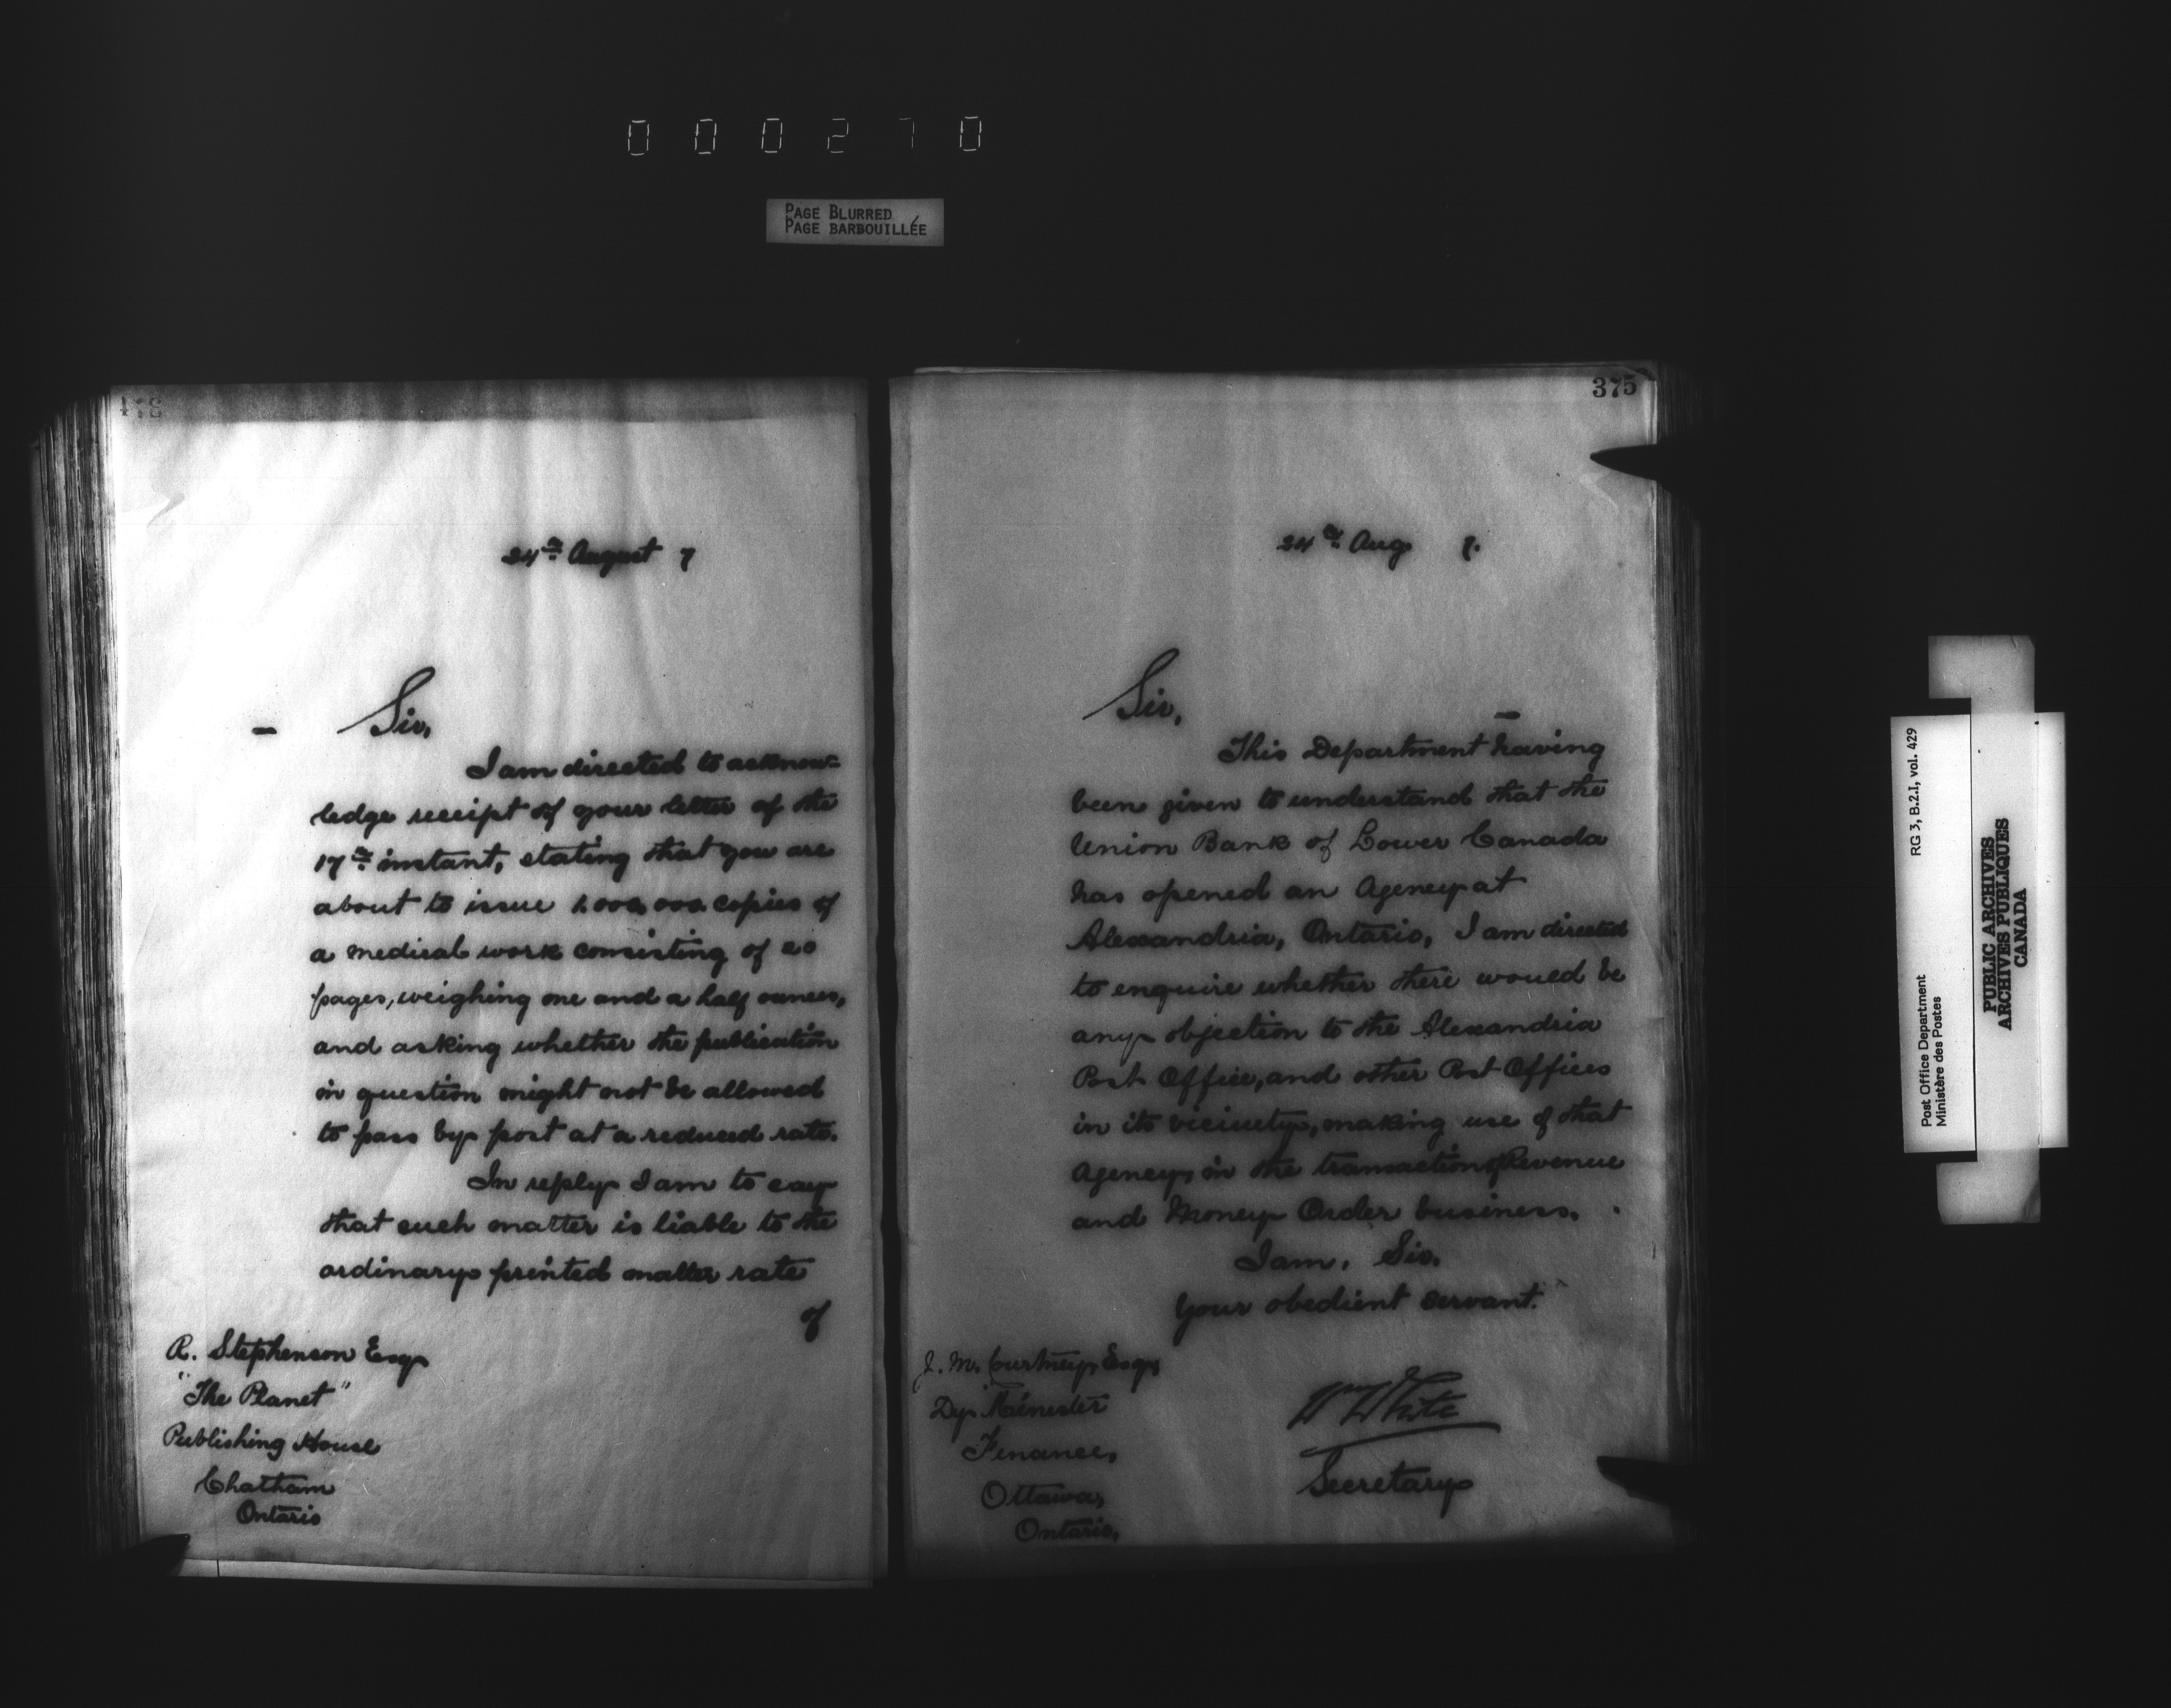 000270
PAGE BLURRED
PAGE BARBOUILLÉE
24th August 7
Sir,
I am directed to acknow-
ledge receipt of your letter of the
17th instant, stating that you are
about to issue 1.000,000 copies of
a medical work consisting of 20
pages, weighing one and a half ounces,
and asking whether the publication
in question might not be allowed
to pass by post at a reduced rate.
In reply I am to say
that such matter is liable to the
ordinary printed matter rate
of
R. Stephenson Esq
"The Planet"
Publishing House
Chatham
Ontario
375
24th Aug. 7.
Sir,
This Department having
been given to understand that the
Union Bank of Lower Canada
has opened an Agency at
Alexandria, Ontario, I am directed
to enquire whether there would be
any objection to the Alexandria
Post Office, and other Post Offices
in its vicinity, making use of that
Agency, in the transaction of Revenue
and Money Order business.
I am, Sir,
Your obedient servant.
J. M. Courtney, Esq,
Dy. Minister
Finance,
Ottawa,
Ontario,
Wm White
Secretary
RG 3, B.2.I, vol. 429
Post Office Department
Ministère des Postes
PUBLIC ARCHIVES
ARCHIVES PUBLIQUES
CANADA